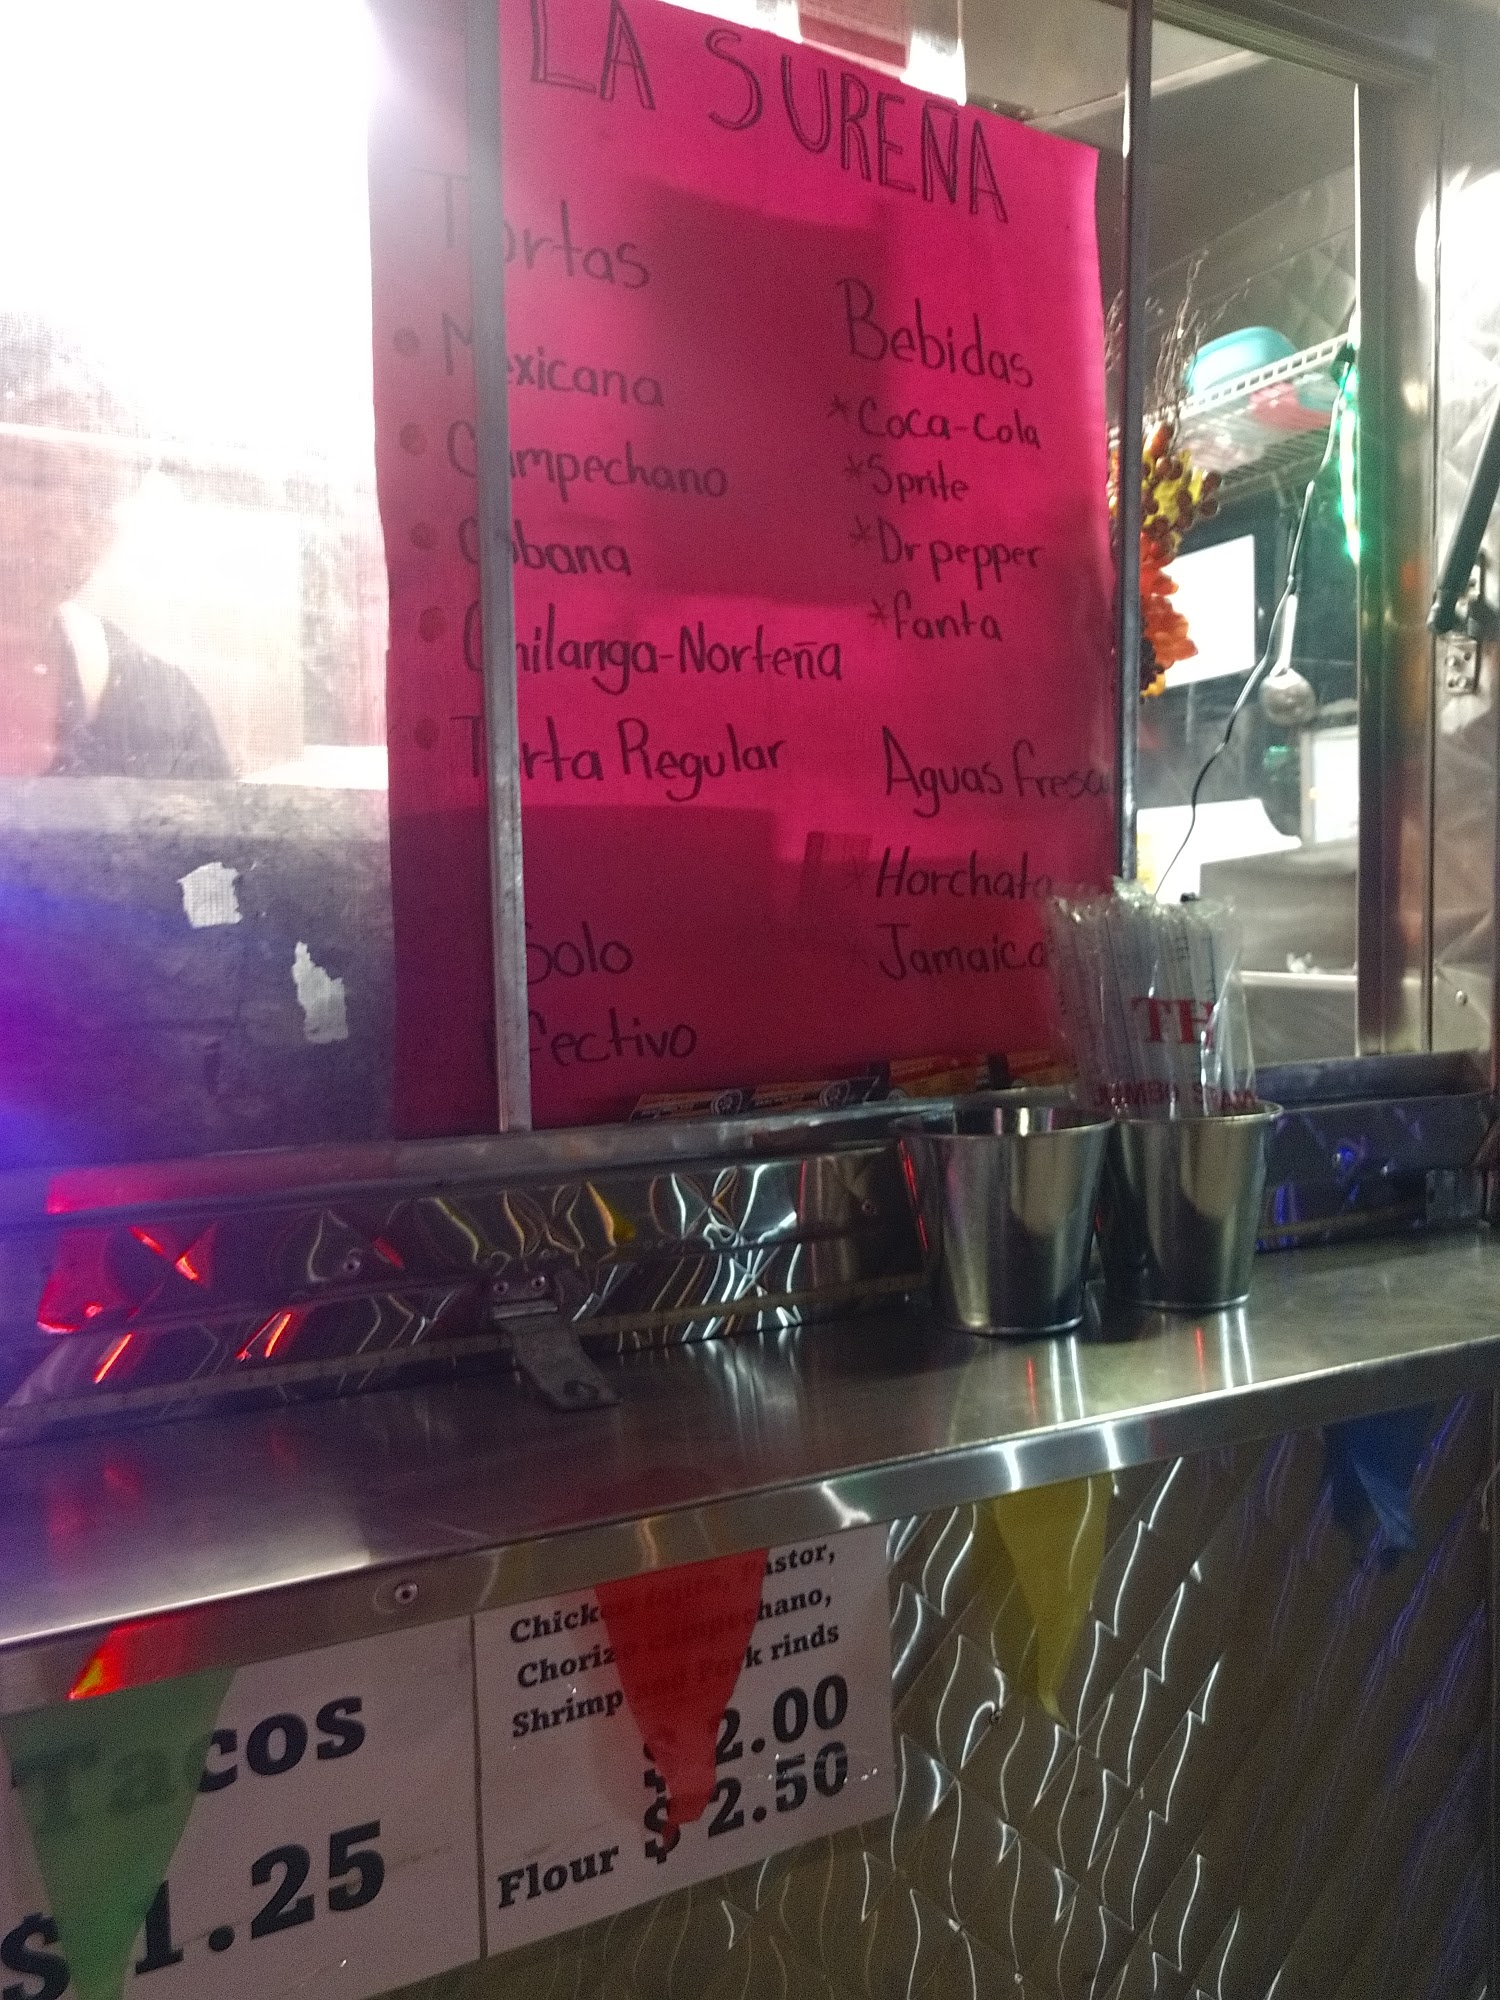 LA SUREÑA
Tortas
Mexicana
Campechano
Cubana
Chilanga-Norteña
Torta Regular
Solo
Efectivo
Bebidas
*Coca-Cola
*Sprite
*Dr pepper
*fanta
Aguas fresca
*Horchata
Jamaica
TH
Tacos
$1.25
Chicken fajita, Pastor,
Chorizo campechano,
Shrimp and Pork rinds
$ 2.00
Flour $ 2.50